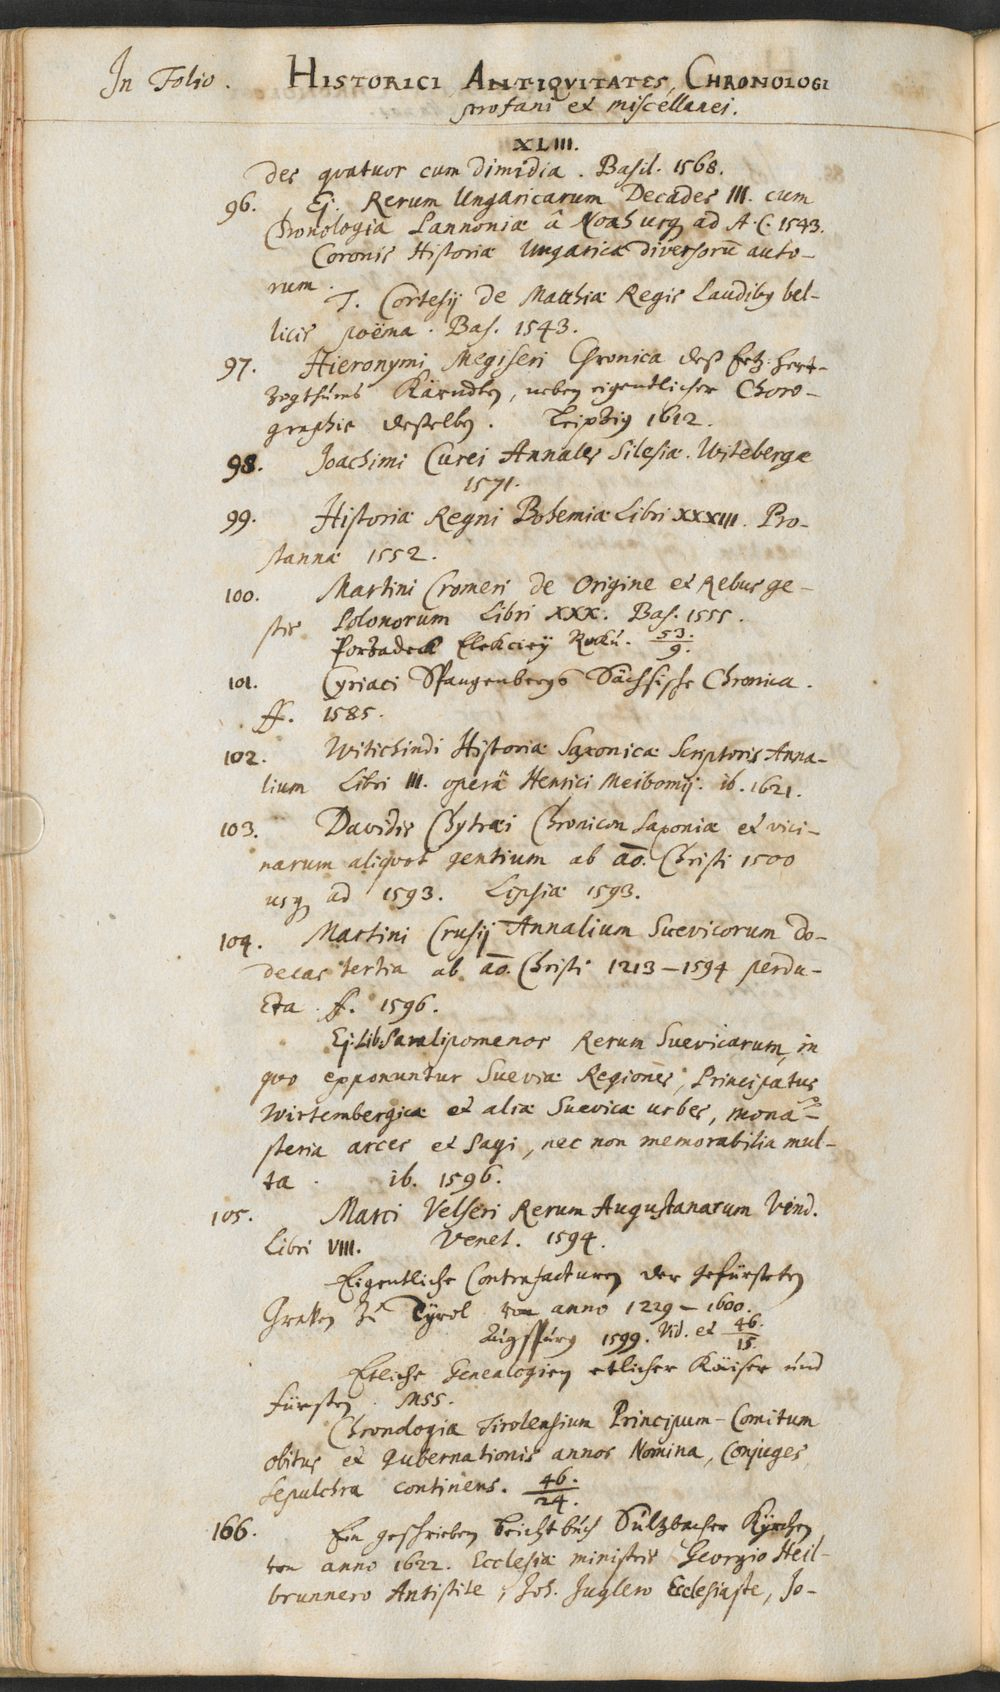 In Folio. HISTORICI ANTIQVITATES, CHRONOLOGI
profani et miscellanei.
XLIII.
des quatuor cum dimidia. Basil. 1568.
96. Ej. Rerum Ungaricarum Decades III. cum
Chronologia Pannoniæ â Noah usq ad A. C. 1543.
Coronis Historiæ Ungaricæ diversorũ auto-
rum.
T. Cortesij de Matthiæ Regis Laudibq bel-
licis poëma. Bas. 1543.
97. Hieronymi Megiseri Chronica deß Ertz-Hert-
zogthumbs Kärndten, neben eigentlicher Choro-
graphie deßelben. Leipzig 1612.
98. Joachimi Curei Annales Silesiæ. Witebergæ
1571.
99. Historiæ Regni Bohemiæ Libri XXXIII. Pro-
stannæ 1552.
100. Martini Cromeri de Origine et Rebus ge-
stis Polonorum Libri XXX. Bas. 1555.
Porzadeck Elekciey Roku. 53./9.
101. Cyriaci Spangenbergs Sächsische Chronica.
ff. 1585.
102. Witichindi Historiæ Saxonicæ Scriptoris Anna-
lium Libri III. operâ Henrici Meibomij. ib. 1621.
103. Davidis Chytræi Chronicon Saxoniæ et vici-
narum aliquot gentium ab aõ. Christi 1500
usq ad 1593. Lipsiæ 1593.
104. Martini Crusij Annalium Suevicorum do-
decas tertia ab aõ. Christi 1213-1594 perdu-
cta. ff. 1596.
Ej. Lib. Paralipomenos Rerum Suevicarum, in
quo exponuntur Sueviæ Regiones, Principatus
Wirtembergicæ et aliæ Suevicæ urbes, mona-
steria arces et pagi, nec non memorabilia mul-
ta. ib. 1596.
105. Marci Velseri Rerum Augustanarum Vind.
Libri VIII. Venet. 1594.
Eigentliche Contrafacturen der gefürsteten
Graffen zu Tÿrol von anno 1229-1600.
Augspurg 1599. Vid. et 46./15.
Etliche Genealogien etlicher Käiser und
Fürsten. MSS.
Chronologia Tirolensium Principum-Comitum
obitus et gubernationis annos Nomina, Conjuges,
Sepulchra continens. 46./24.
166. Ein geschrieben Beichtbuch Sultzbacher Kÿrchen,
von anno 1622. Ecclesiæ ministris Georgio Heil-
brunnero Antistite, Joh. Juglero Ecclesiaste, Jo-